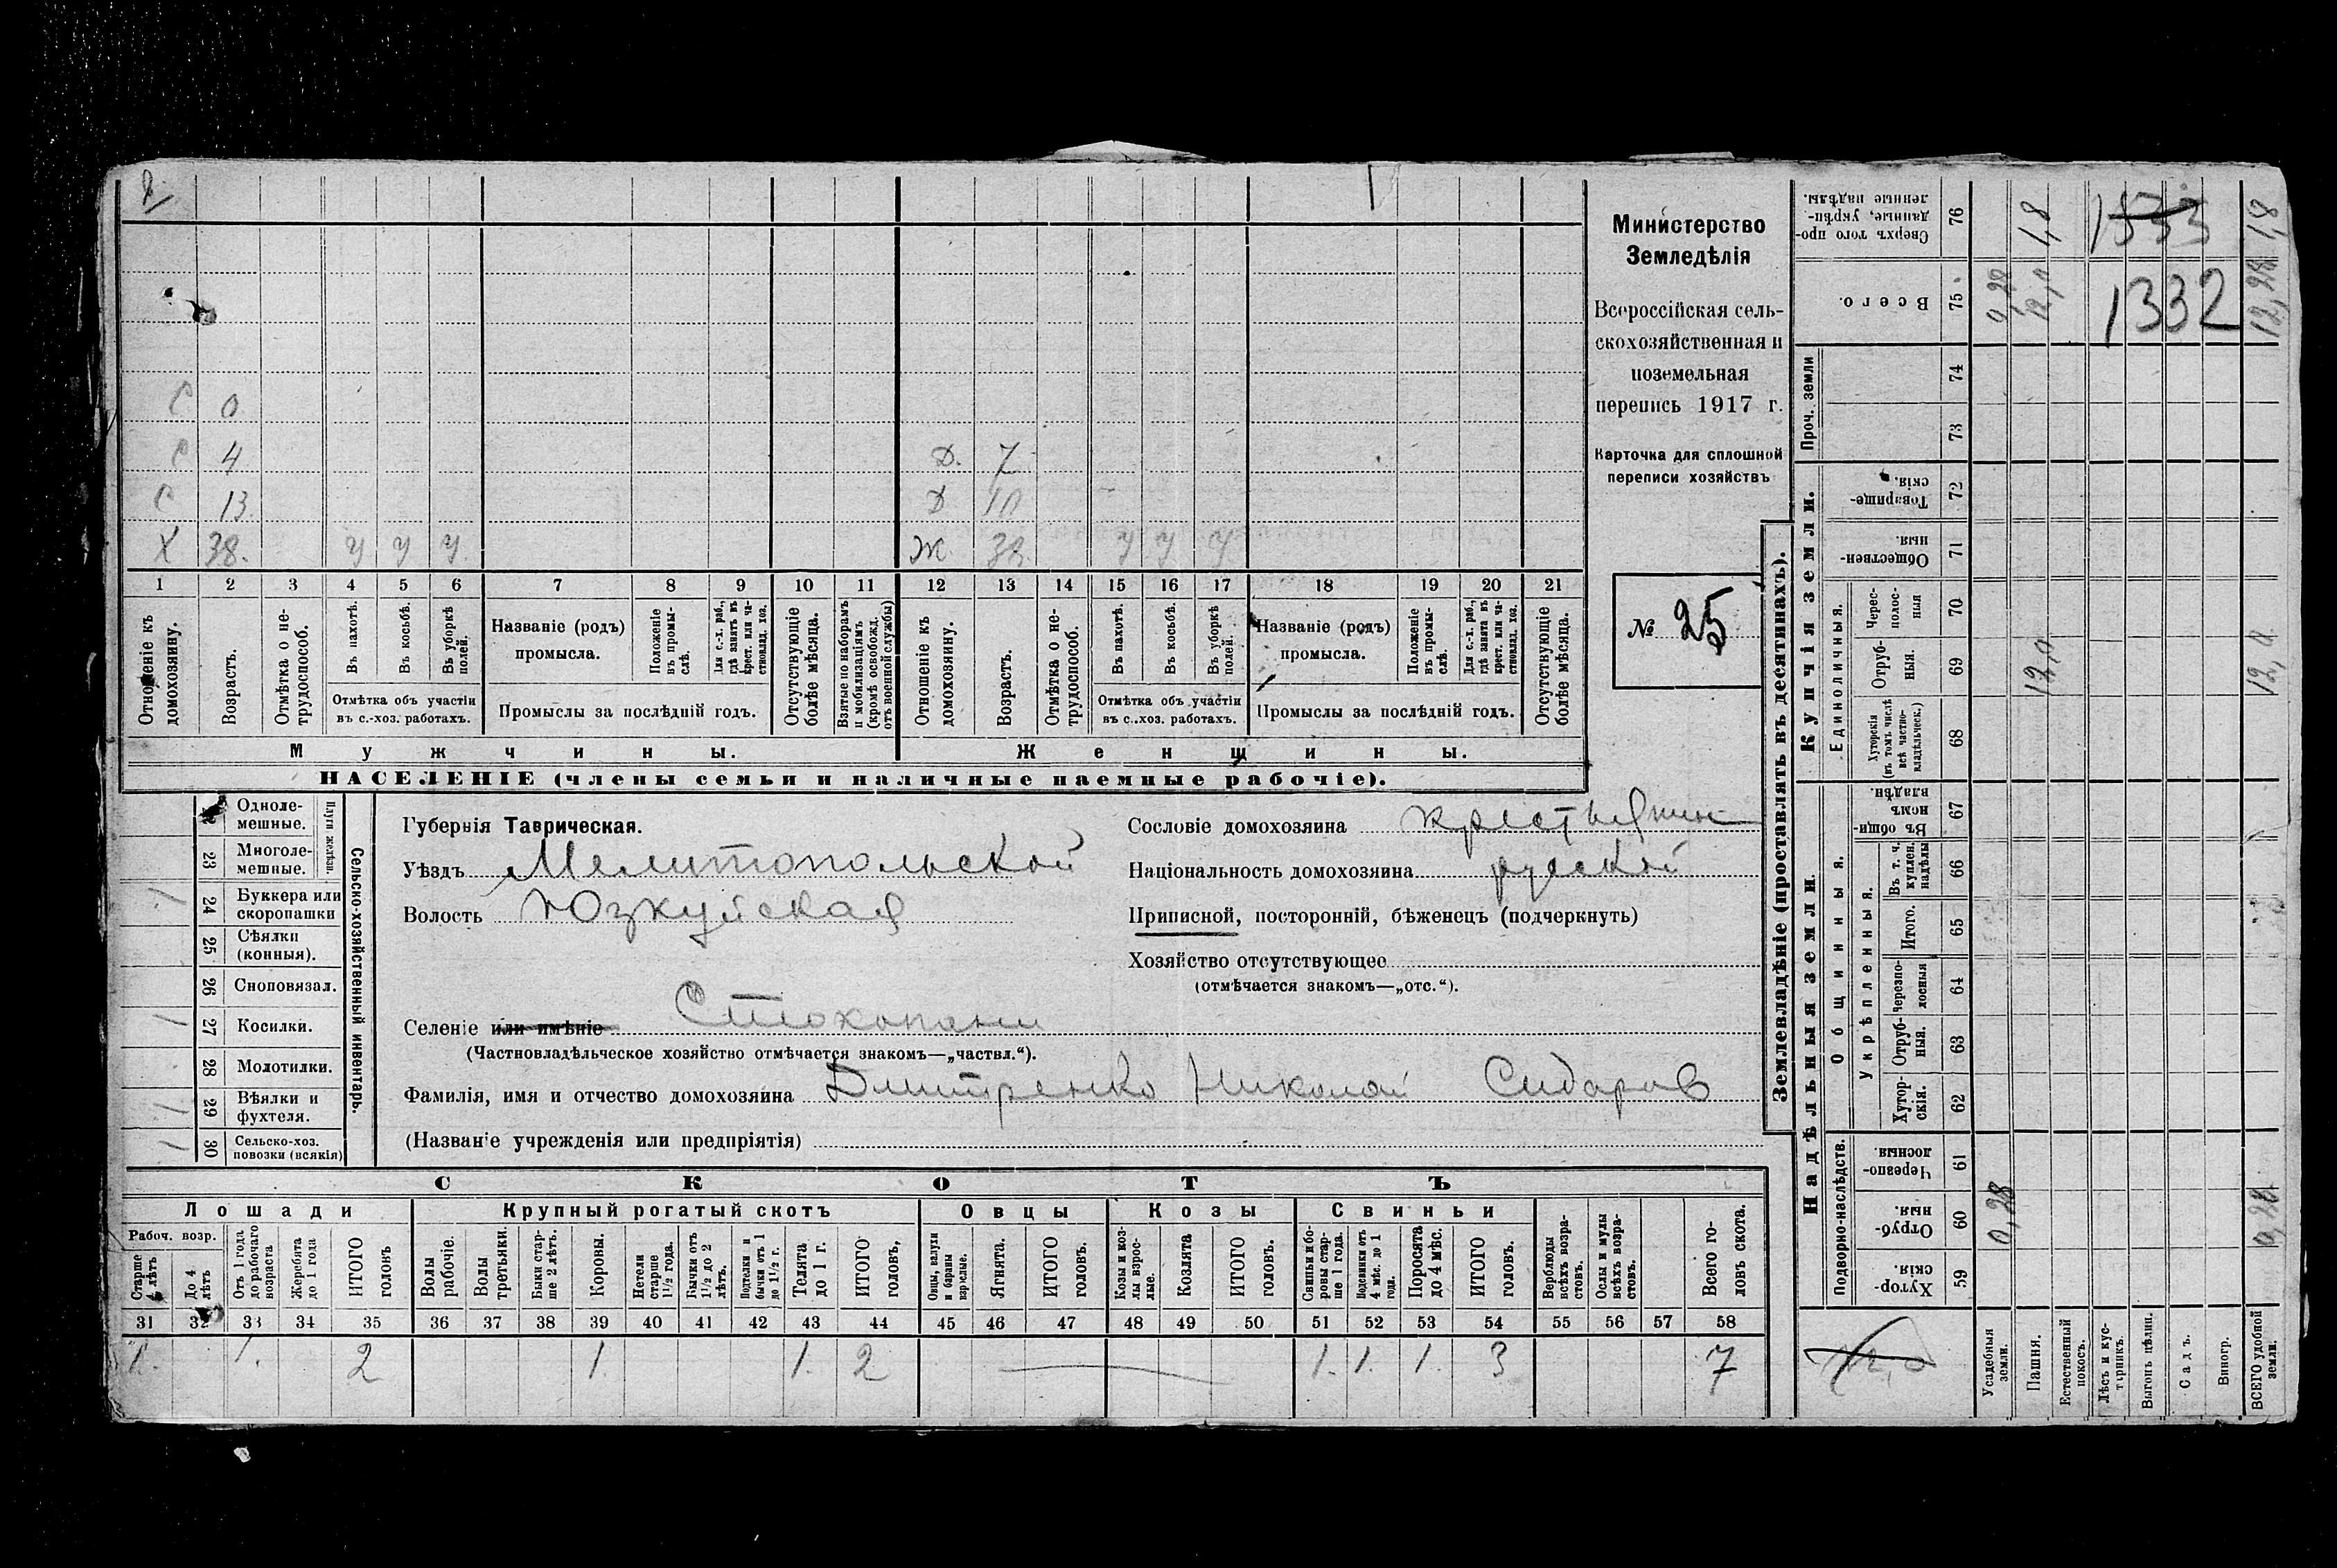 С 0
С 4 Д. 7
С 13 Д 10
Х 38. У У У. Ж 38 У У У
1 2 3 4 5 6 7 8 9 10 11 12 13 14 15 16 17 18 19 20 21
Отношеніе къ домохозяину.
Возрастъ.
Отмѣтка о не-трудоспособ.
Въ пахотѣ.
Въ косьбѣ.
Въ уборкѣ полей.
Отмѣтка объ участіи
въ с.-хоз. работахъ.
Названіе (родъ)
промысла.
Положеніе въ промы-слѣ.
Для с.-х. раб., гдѣ занятъ въ крест. или ча-стновлад. хоз.
Промыслы за послѣдній годъ.
Отсутствующіе болѣе мѣсяца.
Взятые по наборамъ и мобилизаціямъ (кромѣ освобожд. отъ военной службы)
Отношеніе къ домохозяину.
Возрастъ.
Отмѣтка о не-трудоспособ.
Въ пахотѣ.
Въ косьбѣ.
Въ уборкѣ полей.
Отмѣтка объ участіи
въ с..хоз. работахъ.
Названіе (родъ)
промысла.
Положеніе въ промы-слѣ.
Для с.-х. раб., гдѣ занята въ крест. или ча-стновлад. хоз.
Промыслы за послѣдній годъ.
Отсутствующіе болѣе мѣсяца.
Мужчины.
Женщины.
НАСЕЛЕНІЕ (члены семьи и наличные наемные рабочіе).
Министерство
Земледѣлія
Всероссійская сель-
скохозяйственная и
поземельная
перепись 1917 г.
Карточка для сплошной
переписи хозяйствъ
№ 25
Сельско-хозяйственный инвентарь.
Плуги желѣзн.
Однолемешные.
23 Многолемешные.
24 Буккера или скоропашки /
25 Сѣялки (конныя).
26 Сноповязал.
27 Косилки. /
28 Молотилки.
29 Вѣялки и фухтеля. /
30 Сельско-хоз. повозки (всякія) /
Губернія Таврическая.
Уѣздъ Мелитопольской
Волость Юзкуйская
Селеніе или имѣніе Стокопани
(Частновладѣльческое хозяйство отмѣчается знакомъ—„частвл.“).
Фамилія, имя и отчество домохозяина Дмитренко Николай Сидаров
(Названіе учрежденія или предпріятія)
Сословіе домохозяина крестьянин
Національность домохозяина русской
Приписной, посторонній, бѣженецъ (подчеркнуть)
Хозяйство отсутствующее
(отмѣчается знакомъ—„отс.“).
СКОТЪ
Лошади
Крупный рогатый скотъ
Овцы
Козы
Свиньи
Рабоч. возр.
Старше 4 лѣтъ
До 4 лѣтъ
Отъ 1 года до рабочаго возраста
Жеребята до 1 года
ИТОГО головъ
Волы рабочіе.
Волы третьяки.
Быки стар-ше 2 лѣтъ.
Коровы.
Нетели старше 1½ года.
Бычки отъ 1½ до 2 лѣтъ.
Подтелки и бычки отъ 1 до 1½ г.
Телята до 1 г.
ИТОГО головъ,
Овцы, валухи и бараны взрослые.
Ягнята.
ИТОГО головъ.
Козы и коз-лы взрос-лые.
Козлята
ИТОГО головъ.
Свиньи и бо-ровы стар-ше 1 года.
Подсвинки отъ 4 мѣс. до 1 года.
Поросята до 4 мѣс.
ИТОГО головъ.
Верблюды всѣхъ возра-стовъ.
Ослы и мулы всѣхъ возра-стовъ.
Всего го-ловъ скота.
31 32 33 34 35 36 37 38 39 40 41 42 43 44 45 46 47 48 49 50 51 52 53 54 55 56 57 58
1. 1. 2 1. 1. 2 1. 1. 1. 3 7
Землевладѣніе (проставлять въ десятинахъ).
Купчія земли.
Надѣльныя земли.
Сверхъ того про-данные, укрѣп-ленные надѣлы. 76 1,8 1,8
1333
Всего. 75 0,28 12,0 12,28
1332
Проч. земли 74 73
Товарище-скія. 72
Обществен-ныя. 71
Единоличныя.
Черес-полос-ныя 70
Отруб-ныя. 69 12,0 12,0
Хуторскія (въ томъ числѣ всѣ частно-владѣльческ.) 68
Общинныя.
Въ общин-номъ владѣн. 67
Укрѣпленныя.
Въ т. ч. куплен. надѣлы 66
Итого. 65
Черезпо-лосныя 64
Отруб-ныя. 63
Хутор-скія. 62
Подворно-наслѣдств.
Черезпо-лосныя. 61
Отруб-ныя. 60 0,28 0,28
Хутор-скія. 59
Усадебныя земли.
Пашня.
Естественный покосъ.
Лѣсъ и кус-тарникъ.
Выгонъ цѣлин.
Садъ.
Виногр.
ВСЕГО удобной земли.